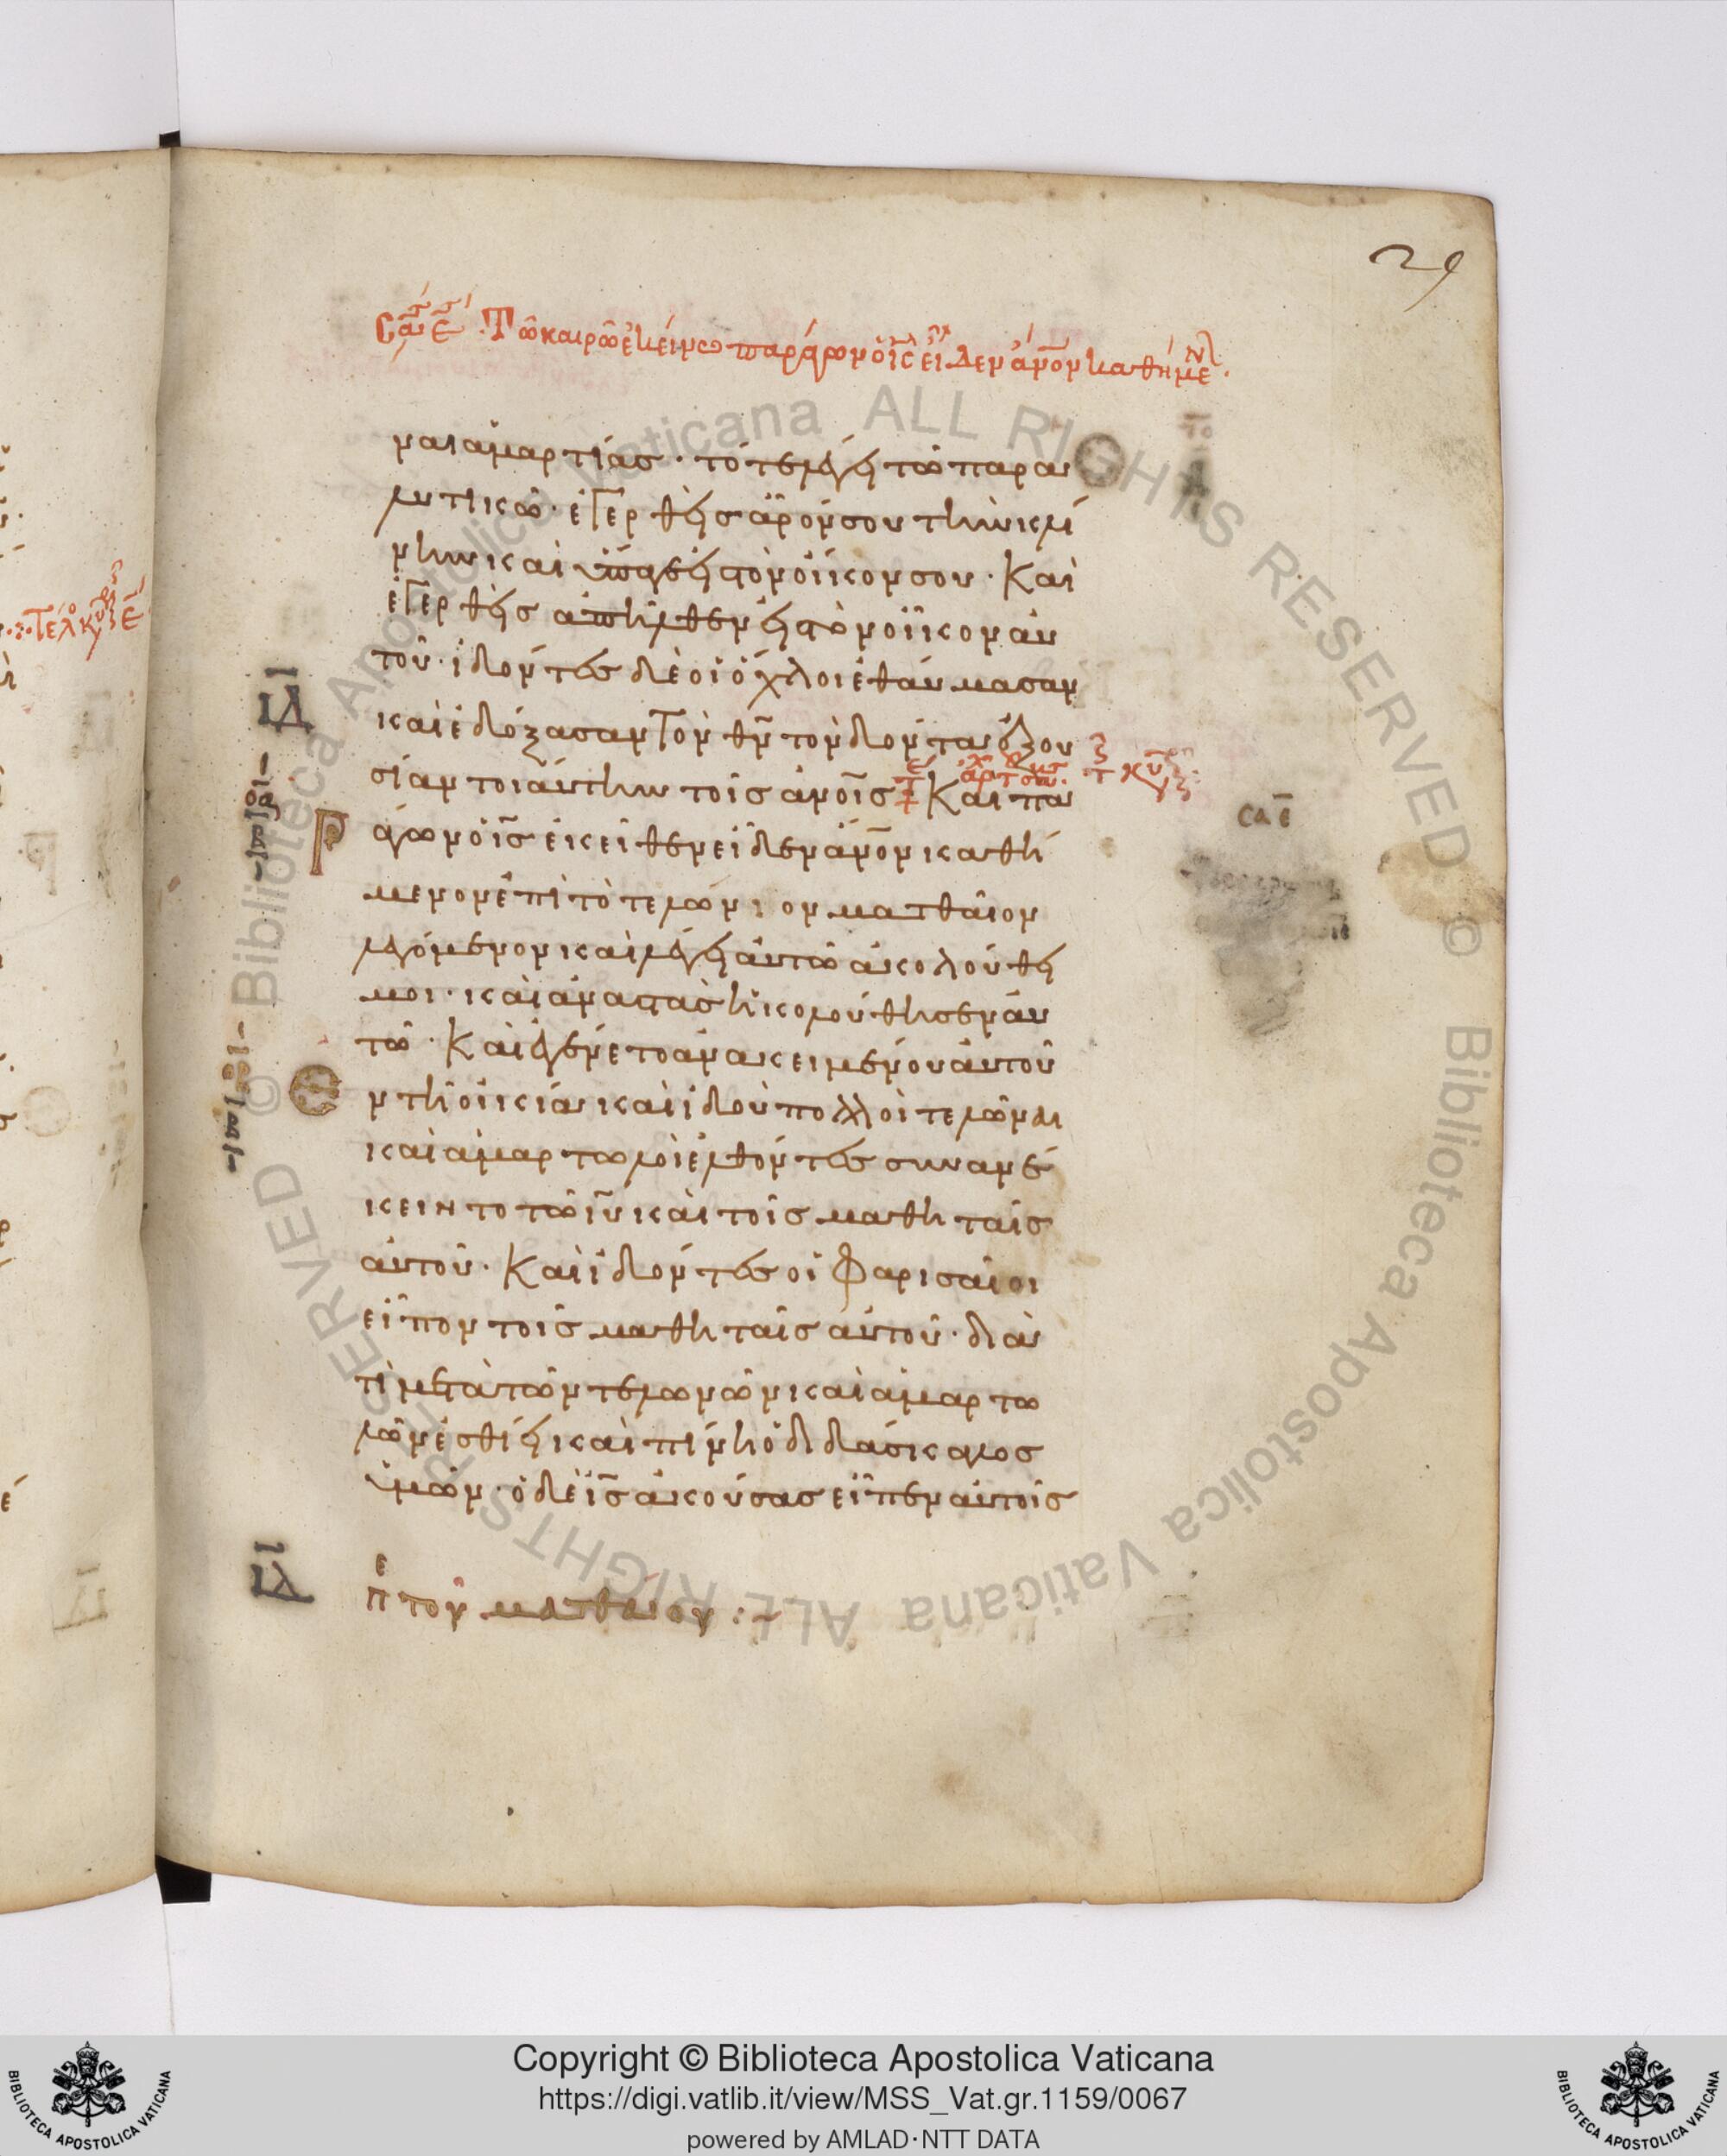 29
Σα ε Τῶ καιρῶ ἐκείνω παράγων ὁ ις εἶδεν ἄνον καθήμε
ναι ἁμαρτίας · τότε λέγει τῶ παρα
λυτικῶ · ἐγερθεὶς ἆρόν σου τὴν κλί
νην καὶ ὕπαγε εἰς τὸν οἶκον σου · Καὶ
ἐγερθεὶς ἀπῆλθεν εἰς τὸν οἶκον αὐ
τοῦ · ἰδόντες δὲ οἱ ὄχλοι ἐθαύμασαν
ΙΔ
καὶ ἐδόξασαν τὸν θν τὸν δόντα ἐξου
σίαν τοιαύτην τοῖς ανοις Καὶ πα
ράγων ὁ ις ἐκεῖθεν εἶδεν ανον καθή
σα ε
μενον ἐπὶ τὸ τελώνιον ματθαῖον
λεγόμενον καὶ λέγει αὐτῶ ἀκολούθει
μοι · καὶ ἀναστὰς ἠκολούθησεν αὐ
τῶ · Καὶ ἐγένετο ἀνακειμένου αὐτοῦ
ν τῆ οἰκία καὶ ἰδοὺ πολλοὶ τελῶναι
καὶ ἁμαρτωλοὶ ἐλθόντες συνανέ
κειντο τῶ ιυ καὶ τοῖς μαθηταῖς
αὐτοῦ · Καὶ ἰδόντες οἱ Φαρισαῖοι
εἶπον τοῖς μαθηταῖς αὐτοῦ · δια
τί μετὰ τῶν τελωνῶν καὶ ἁμαρτω
λῶν ἐσθίει καὶ πίνη ὁ διδάσκαλος
ὑμῶν · ὁ δὲ ις ἀκούσας εἶπεν αὐτοῖς
ΙΔ
πε τοῦ ματθαίου :~
Τελ κυ ε
Copyright © Biblioteca Apostolica Vaticana
https://digi.vatlib.it/view/MSS_Vat.gr.1159/0067
powered by AMLAD·NTT DATA
BIBLIOTECA APOSTOLICA VATICANA
BIBLIOTECA APOSTOLICA VATICANA
© Biblioteca Apostolica Vaticana ALL RIGHTS RESERVED © Biblioteca Apostolica Vaticana ALL RIGHTS RESERVED